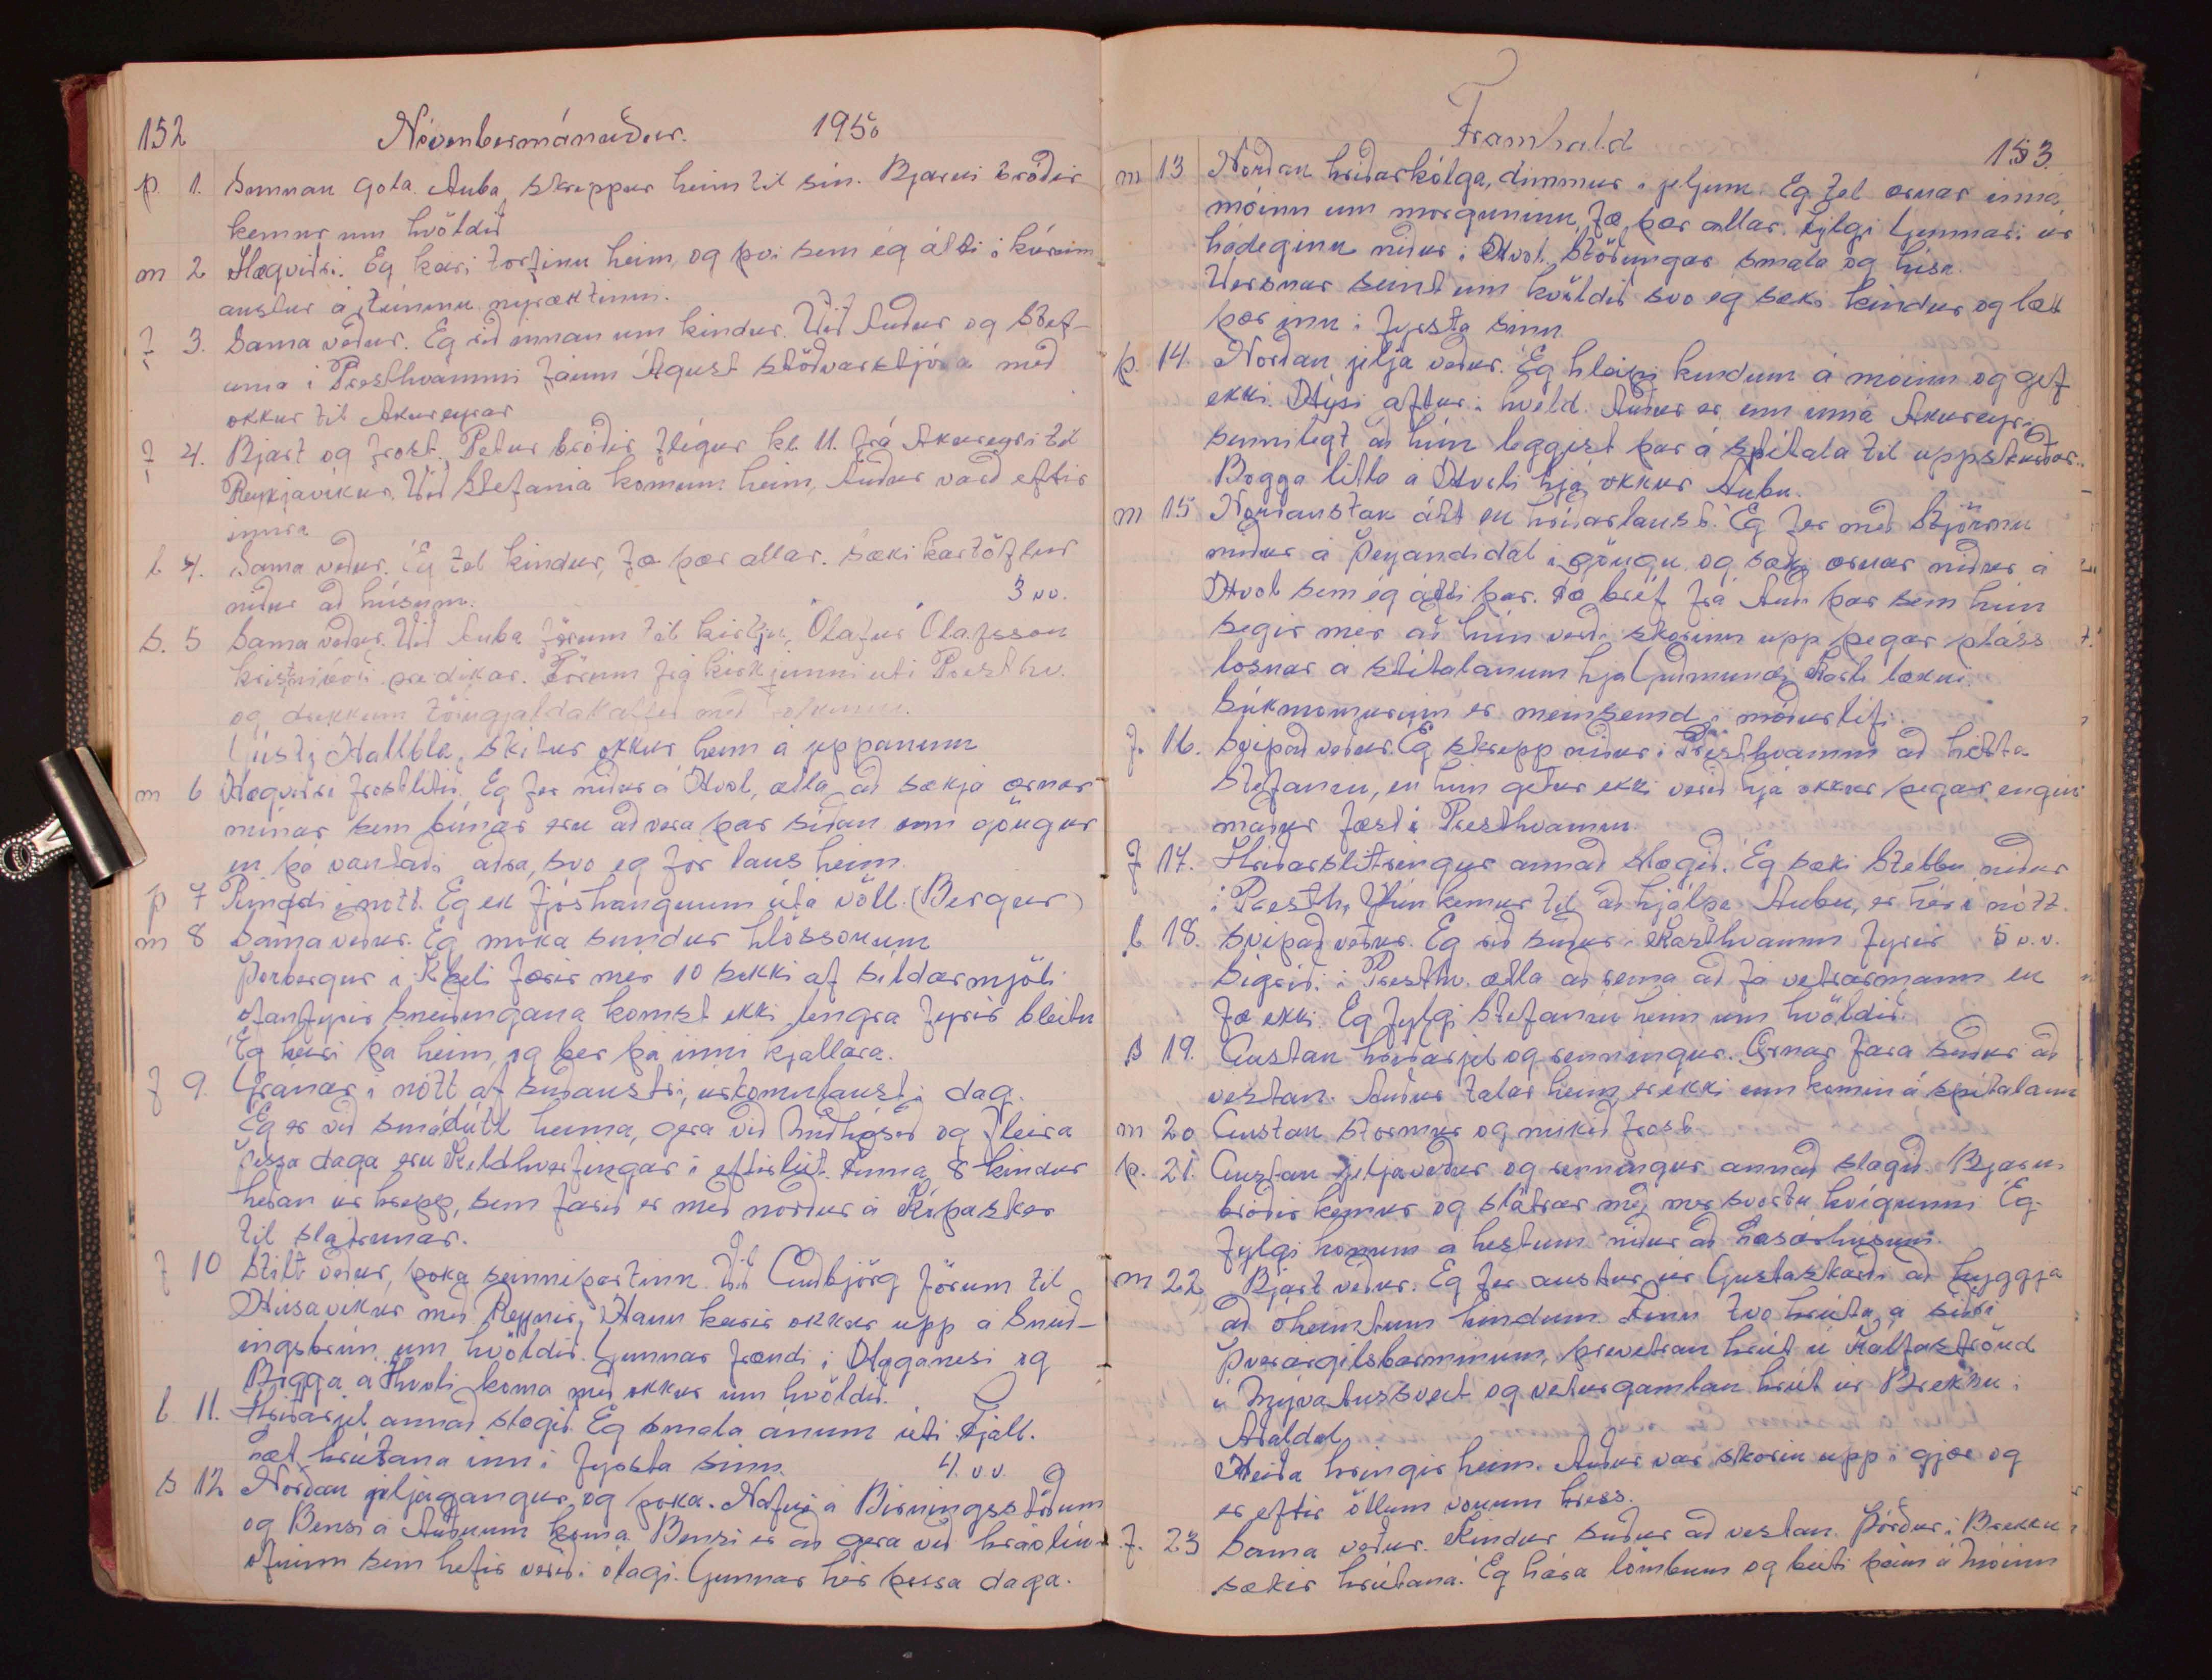 152 Nóvembermánuður. 1950
þ. 1. Sunnan gola. Auba skreppur heim til sín. Bjarni bróðir
kemur um kvöldið
m 2 Hægviðri. Eg keiri torfinu heim, og því sem ég átti í
austur á túninu nýræktinni.
f 3. Sama veður. Eg rið innan um kindur. Við Auður og Stef-
anía í Presthvammi fáum Ágúst stöðvarstjóra með
okkur til Akureyrar
f 4. Bjart og frost. Petur bróðir flígur kl. 11. frá Akureyri til
Reykjavíkur. Við Stefanía komum heim, Auður varð eftir
innra
l 4. Sama veður. Eg tel kindur, fæ þær allar. Sæki kartöflur
niður að húsum. 3 vv.
S. 5 Sama veður. Við Auba förum til kirkju, Ólafur Ólafsson
kristniboði predikar. Förum frá kirkjunni uti Presthv.
og drekkum töðugjaldakaffi með fólkinu.
Gústi Hallbla. skitur okkur heim á jeppanum
m 6 Hægviðri frostlítið. Eg fer niður á Hvol, ætla að sækja ærnar
mínar sem búnar eru að vera þar síðan um göngur
en þá vantaði aðra, svo eg fór laus heim.
þ 7 Rigndi í nótt. Eg ek fjóshaugnum út á völl. (Bergur)
m 8 Sama veður. Eg moka sundur hlössonum
Þorbergur í færir mér 10 sekki af síldarmjöli
ofanfyrir Sneiðingana komst ekki lengra fyrir bleitu
Eg keiri þá heim, og ber þá inní kjallara.
f 9. Gránar í nótt af suðaustri, úrkomulaust í dag.
Eg er við smádútl heima, gera við og fleira
þessa daga eru Keldhverfingar í eftirleit. Finna 8 kindur
héðan úr hrepp, sem farið er með norður á Kópasker
til slátrunar.
f 10 Stilt veður, þoka seinnipartinn. Við Guðbjörg förum til
Húsavíkur með Reynir, Hann keirir okkur upp á Sneið-
ingsbrún um kvöldið. Gunnar frændi í Haganesi og
Bogga á Hvoli koma með okkur um kvöldið.
l 11. Hríðarjel annað slagið. Eg smala ánum úti Fjall.
læt hrútana inn í fyrsta sinn. 4. v v.
S 12 Norðan jeljagangur og þoka. á Birningsstöðum
og Bensi á Auðnum koma. Bensi er að gera við hráolíu-
ofninn sem hefir verið í ólagi. Gunnar hér þessa daga.
Framhald 153.
m 13 Norðan hríðarkólga, dimmur í jeljum. Eg tel ærnar inná
móinn um morguninn, fæ þær allar. Fylgi Gunnari úr
hádeginu niður í Hvol. Stöðungar smala og hísa.
Versnar seint um kvöldið svo eg sæki kindur og læt
þær inn í fyrsta sinn.
þ. 14. Norðan jelja veður. Eg hleipi kindum á móinn og gef
ekki. Hýsi aftur í kveld. Auður er enn inná Akureyri,
sennilegt að hún leggist þar á spítala til uppskurðar.
Bogga litla á Hvoli hjá okkur Aubu.
m 15 Norðaustan átt en hríðarlaust. Eg fer með Stjörnu
niður á Þeyandidal í göngu og sæki ærnar niður á
Hvol sem ég átti þar. Fæ bréf frá Auði þar sem hún
segir mér að hún verði skorinn upp þegar pláss
losnar á spítalanum hjá Guðmundi Karli lækni.
Sjúkdomurinn er meinsemd í móðurlífi.
f. 16. Svipað veður. Eg skrepp niður í Presthvamm að hitta
Stefaníu, en hún getur ekki verið hjá okkur þegar engin
maður fæst í Presthvamm.
f 17. Hríðarslitringur annað slagið. Eg sæki Stebbu niður
í Presth, Hún kemur til að hjálpa Aubu, er hér í nótt.
l 18. Svipað veður. Eg rið suður í Kasthvamm fyrir 5 v.v.
Sigriði í Presthv. ætla að reina að fá vetrarmann en
fæ ekki. Eg fylgi Stefaníu heim um kvöldið.
S 19. Austan hríðarjel og renningur. Ærnar fara suður að
vestan. Auður talar heim, er ekki enn komin á spítalann
m 20 Austan stormur og mikið frost.
þ. 21. Austan jeljaveður og renningur annað slagið. Bjarni
bróðir kemur og slátrar með mér svörtu kvígunni Eg
fylgi honum á hestum niður að húsum.
m 22 Bjart veður. Eg fer austur úr Gustaskarði að hyggja
að óheimtum kindum. Finn tvo hrúta á
Þverárgilsbarminum, þrevetran hrút ú Kálfaströnd
í Mývatnssveit og veturgamlan hrút úr Brekku í
Aðaldal.
Heiða hringir heim. Auður var skorin upp í gjær og
er eftir öllum vonum hress.
f. 23 Sama veður. Kindur suður að vestan. Þórður í Brekku
sækir hrútana. Eg hára lömbum og beiti þeim á móinn